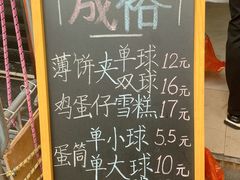 成裕
薄饼夹单球12元
双球16元
鸡蛋仔雪糕17元
蛋筒单小球5.5元
单大球10元